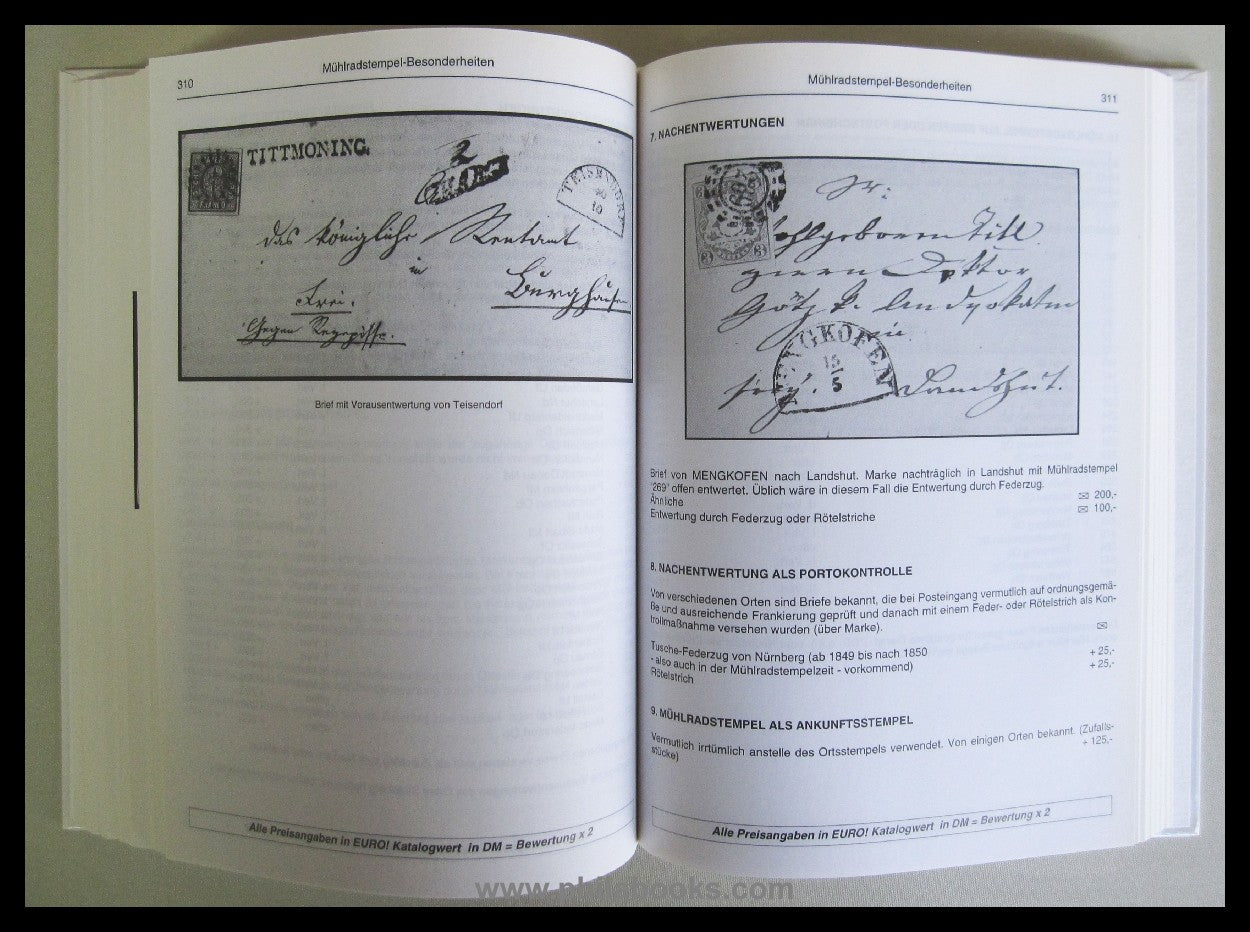 310
Mühlradstempel-Besonderheiten
TITTMONING.
2
CHARG
TEISENDORF
10
das königliche Rentamt
in
Burghausen
Frei.
Gegen
Brief mit Vorausentwertung von Teisendorf
Alle Preisangaben in EURO! Katalogwert in DM = Bewertung x 2
Mühlradstempel-Besonderheiten
311
7. NACHENTWERTUNGEN
3 3
Doktor
in
MENGKOFEN
15
5
Landshut.
Brief von MENGKOFEN nach Landshut. Marke nachträglich in Landshut mit Mühlradstempel
"269" offen entwertet. Üblich wäre in diesem Fall die Entwertung durch Federzug.
Ähnliche ✉ 200,-
Entwertung durch Federzug oder Rötelstriche ✉ 100,-
8. NACHENTWERTUNG ALS PORTOKONTROLLE
Von verschiedenen Orten sind Briefe bekannt, die bei Posteingang vermutlich auf ordnungsgemä-
ße und ausreichende Frankierung geprüft und danach mit einem Feder- oder Rötelstrich als Kon-
trollmaßnahme versehen wurden (über Marke). ✉
Tusche-Federzug von Nürnberg (ab 1849 bis nach 1850
- also auch in der Mühlradstempelzeit - vorkommend) + 25,-
Rötelstrich + 25,-
9. MÜHLRADSTEMPEL ALS ANKUNFTSSTEMPEL
Vermutlich irrtümlich anstelle des Ortsstempels verwendet. Von einigen Orten bekannt. (Zufalls-
stücke) + 125,-
Alle Preisangaben in EURO! Katalogwert in DM = Bewertung x 2
www.philabooks.com